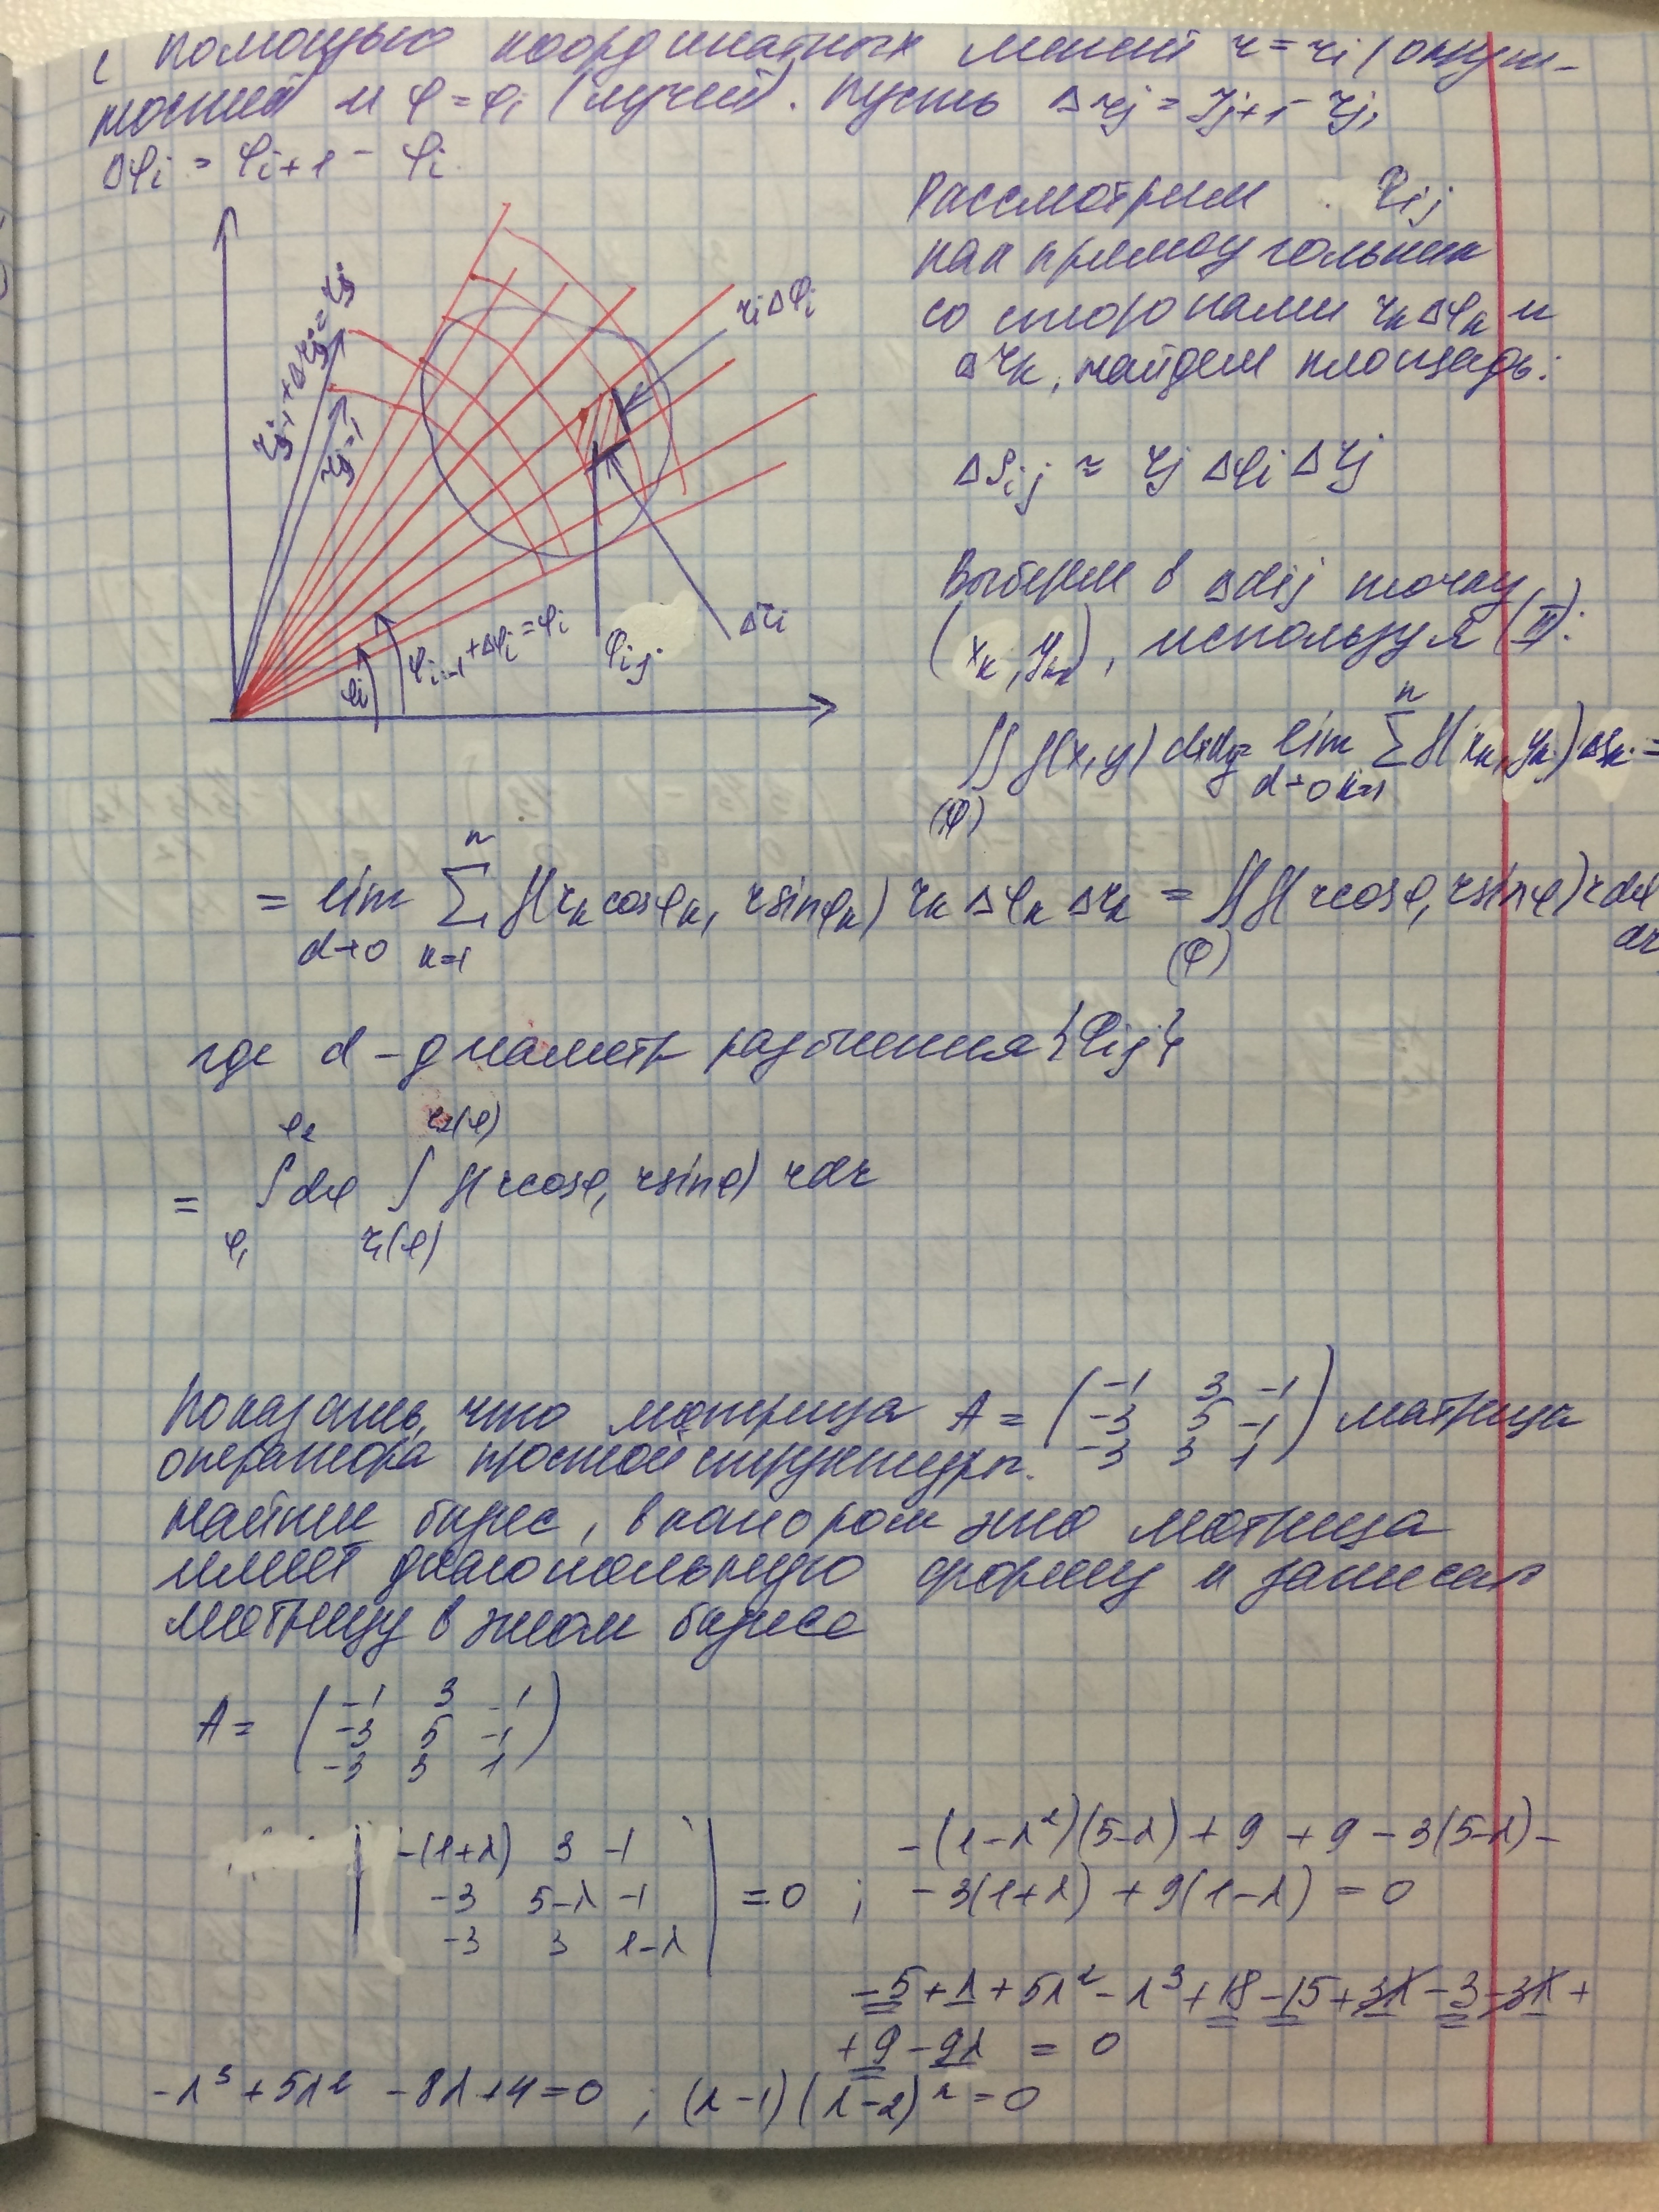 с помощью координатных линий r = ri (окруж-
ностей и φ = φi (лучей). Пусть Δrj = rj+1 - rj,
Δφi = φi+1 - φi
Рассмотрим Pij
как прямоугольник
со сторонами rкΔφк и
Δrк, найдем площадь:
ΔPij ≈ rj Δφi Δrj
rj-1 + Δrj = rj
rj-1
ri Δφi
φi
φi-1 + Δφi = φi
φij
Δri
Выберем в Δdij точку
(xк, yк), используя (II):
∬(φ) f(x,y) dxdy = lim d→0 Σ k=1 n f(xк, yк) ΔSк =
= lim d→0 Σ k=1 n f(rк cosφк, r sinφк) rк Δφк Δrк = ∬(φ) f(r cosφ, r sinφ) r dφ dr
где d - диаметр разбиения {φij}
= ∫ φ1 φ2 dφ ∫ r1(φ) r2(φ) f(r cosφ, r sinφ) r dr
Показать, что матрица A = (-1 3 -1
-3 5 -1
-3 3 1) матрица
оператора простой структуры.
Найти базис, в котором эта матрица
имеет диагональную форму и записать
матрицу в этом базисе
A = (-1 3 -1
-3 5 -1
-3 3 1)
|-(1+λ) 3 -1
-3 5-λ -1
-3 3 1-λ| = 0 ;
-(1-λ²)(5-λ) + 9 + 9 - 3(5-λ) -
- 3(1+λ) + 9(1-λ) = 0
-5 + λ + 5λ² - λ³ + 18 - 15 + 3λ - 3 - 3λ +
+ 9 - 9λ = 0
-λ³ + 5λ² - 8λ + 4 = 0 ; (λ-1)(λ-2)² = 0